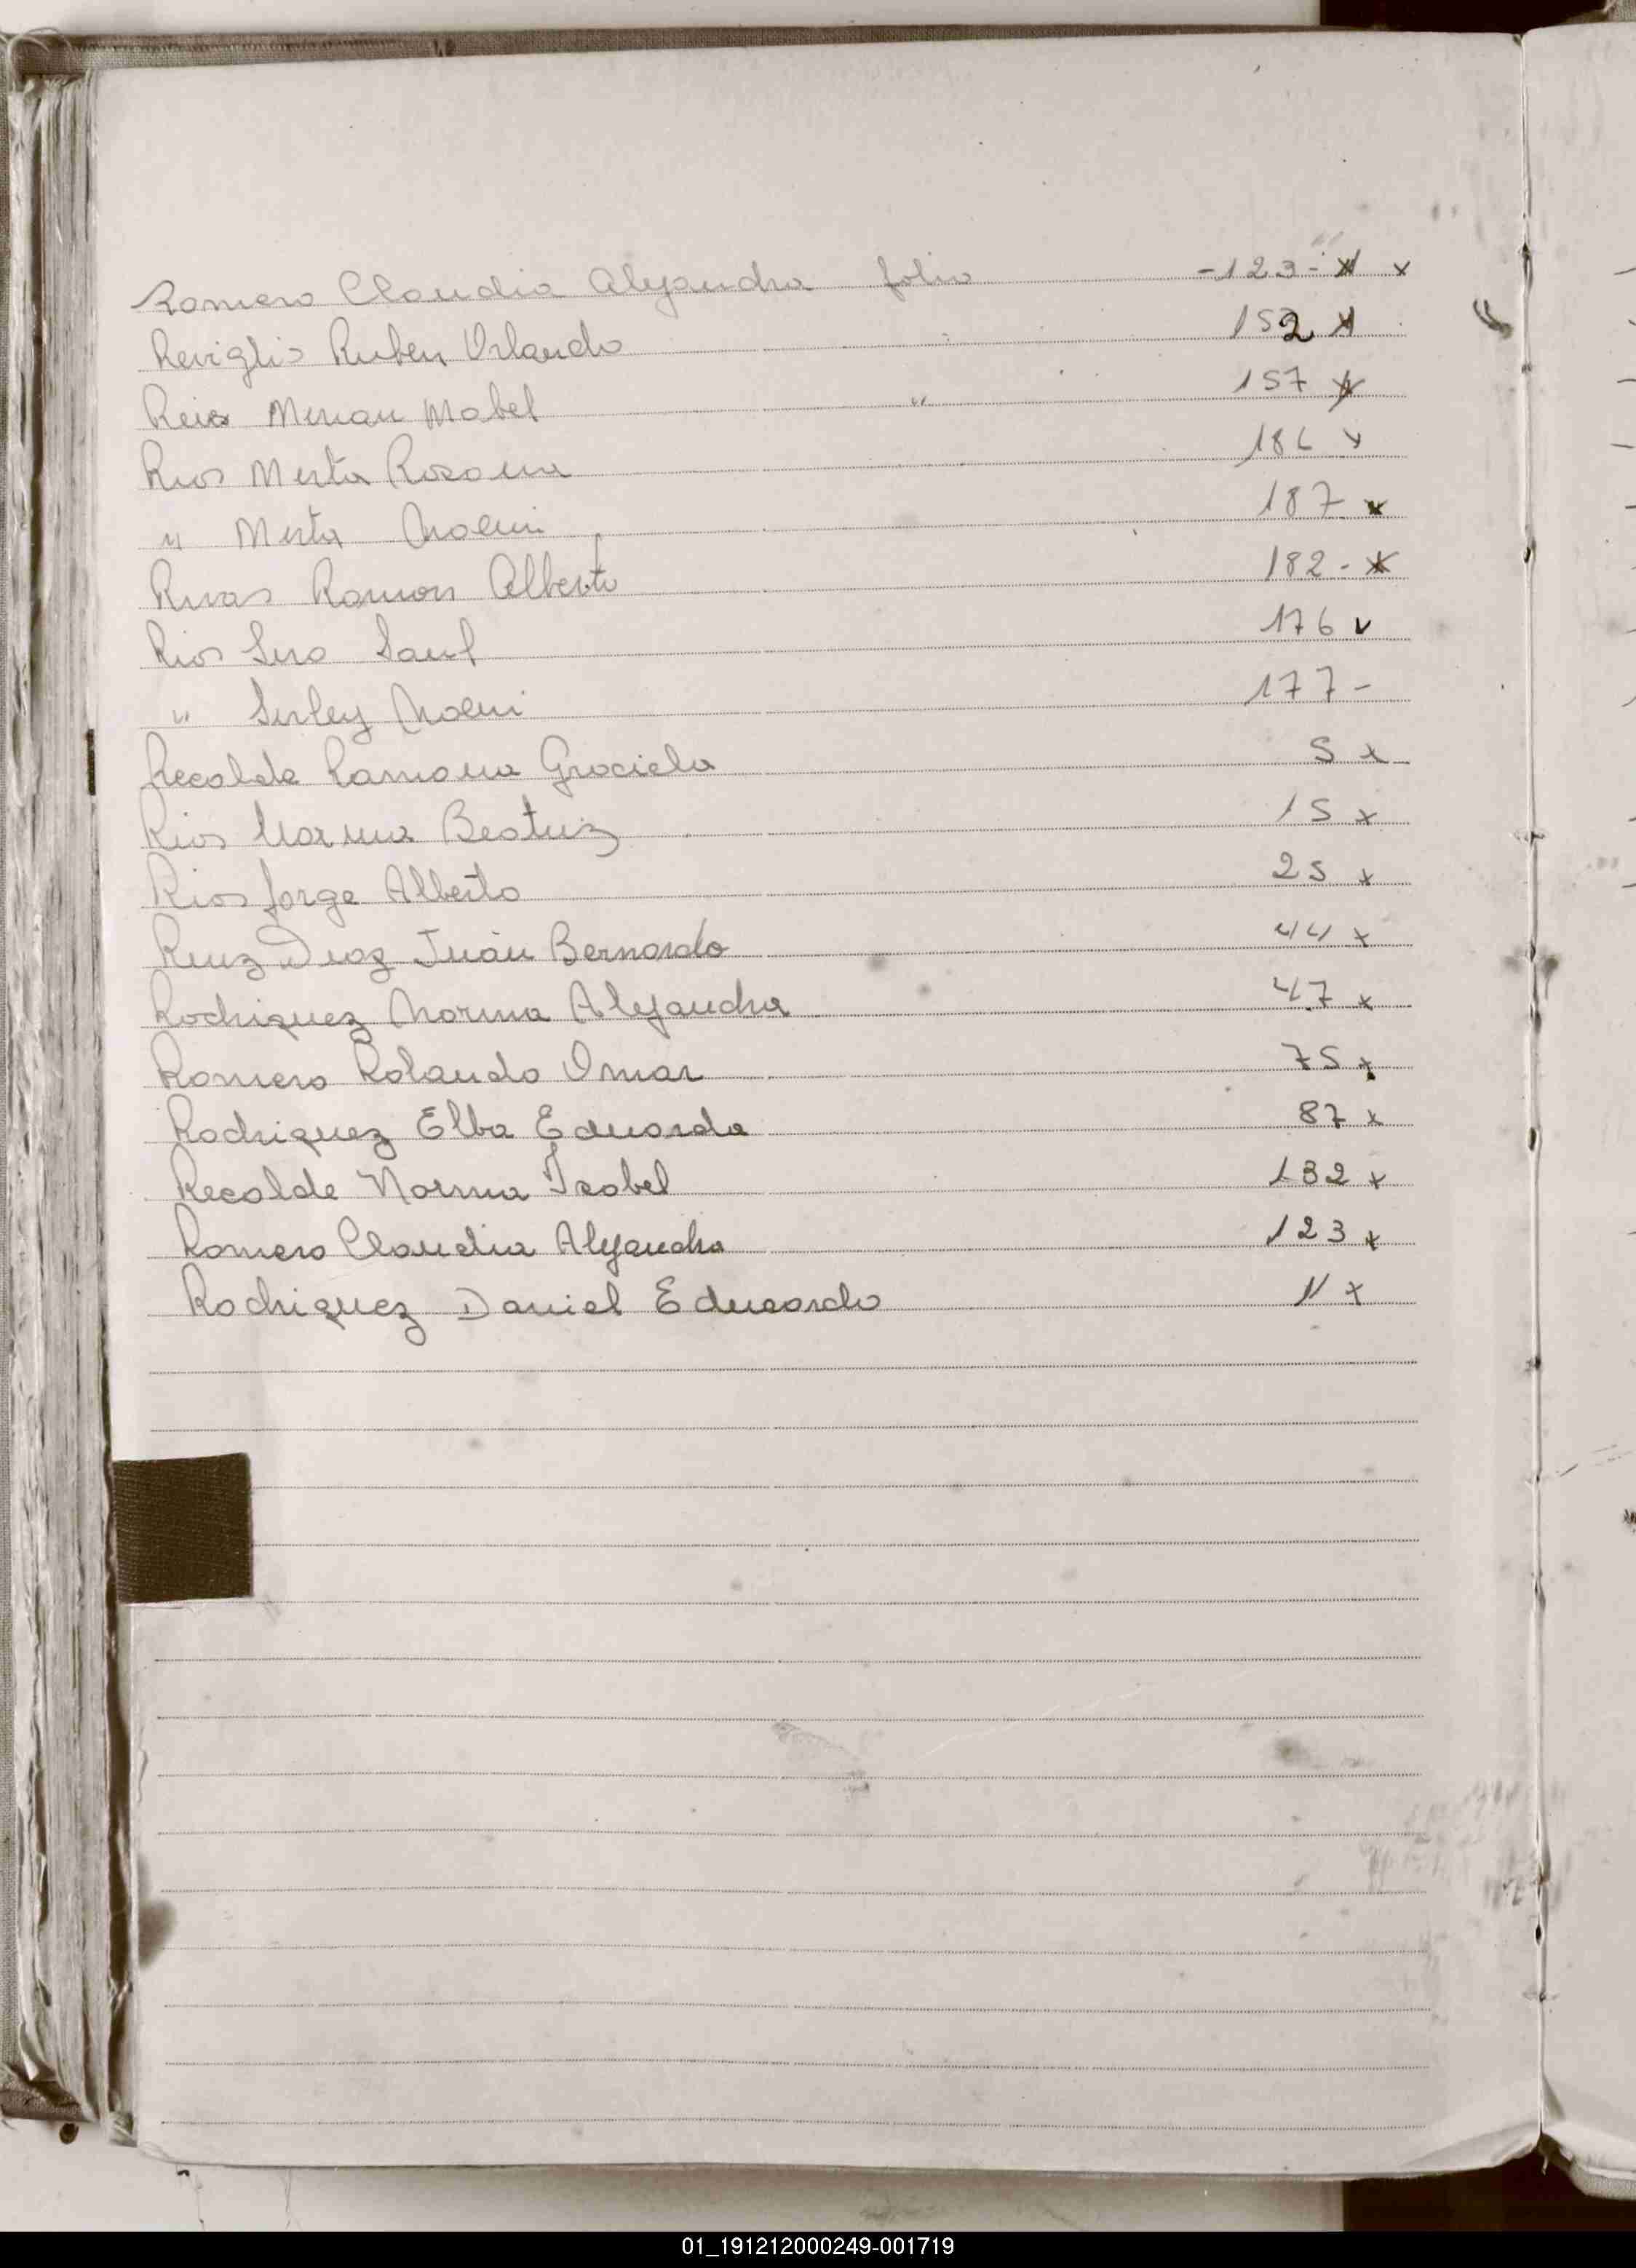 Romero Claudia Alejandra folio -123- x x
Reviglio Ruben Orlando 152 x
Reis Mirian Mabel " 157 x
Rios Mirta Rosana 186 x
" Mirta Noemi 187 x
Rivas Ramon Alberto 182 - x
Rios Siro Saul 176 v
" Sirley Noemi 177 -
Recalde Ramona Graciela 5 x
Rios Norma Beatriz 15 x
Rios Jorge Alberto 25 x
Ruiz Diaz Juan Bernardo 44 x
Rodriguez Norma Alejandra 47 x
Romero Rolando Omar 75 x
Rodriguez Elba Eduarda 87 x
Recalde Norma Isabel 132 x
Romero Claudia Alejandra 123 x
Rodriguez Daniel Eduardo 11 x
01_191212000249-001719